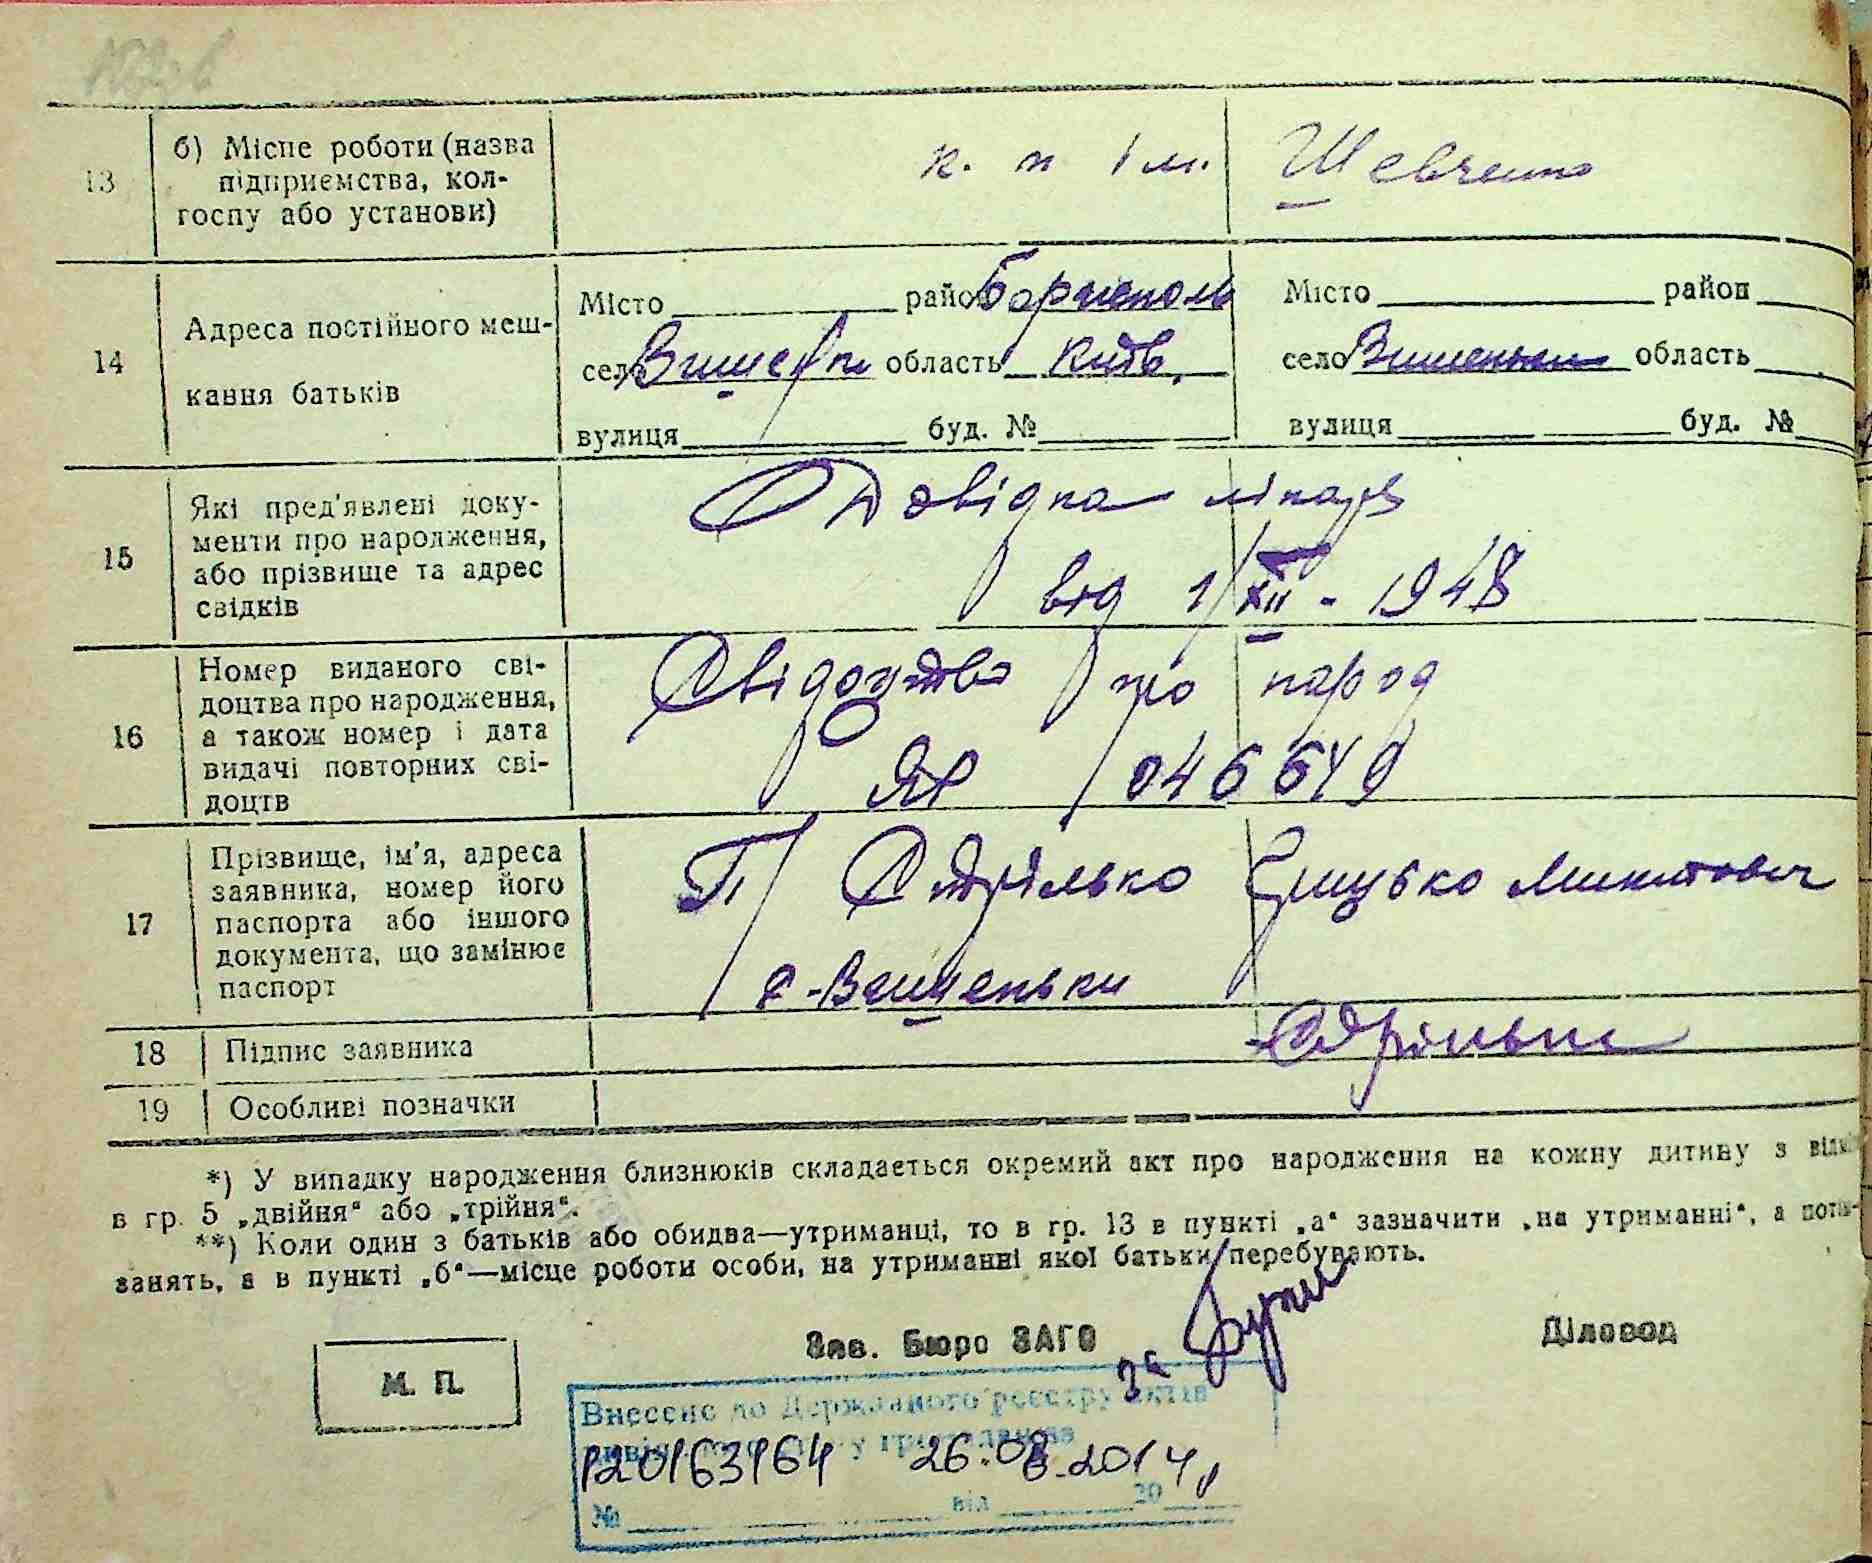 13 б) Місце роботи (назва
підприємства, кол-
госпу або установи)
к. г ім. Шевченка
14 Адреса постійного меш-
кання батьків
Місто район Бориспол
село Вишеньки область Київ.
вулиця буд. №
Місто район
село Вишеньки область
вулиця буд. №
15 Які пред'явлені доку-
менти про народження,
або прізвище та адрес
свідків
Довідка лікаря
від 1/XII - 1948
16 Номер виданого сві-
доцтва про народження,
а також номер і дата
видачі повторних сві-
доцтв
Свідоцтво про народ
ЯР 046649
17 Прізвище, ім'я, адреса
заявника, номер його
паспорта або іншого
документа, що замінює
паспорт
Стрілько Грицько Микитович
с. Вишеньки
18 Підпис заявника
19 Особливі позначки
*) У випадку народження близнюків складається окремий акт про народження на кожну дитину з
в гр. 5 „двійня“ або „трійня“.
**) Коли один з батьків або обидва—утриманці, то в гр. 13 в пункті „а“ зазначити „на утриманні“, а
занять, а в пункті „б“—місце роботи особи, на утриманні якої батьки перебувають.
Зав. Бюро ЗАГС
Діловод
М. П.
за
Внесено до Державного реєстру актів
цивільного стану громадян
120163964 26.08.2014
№ від 20